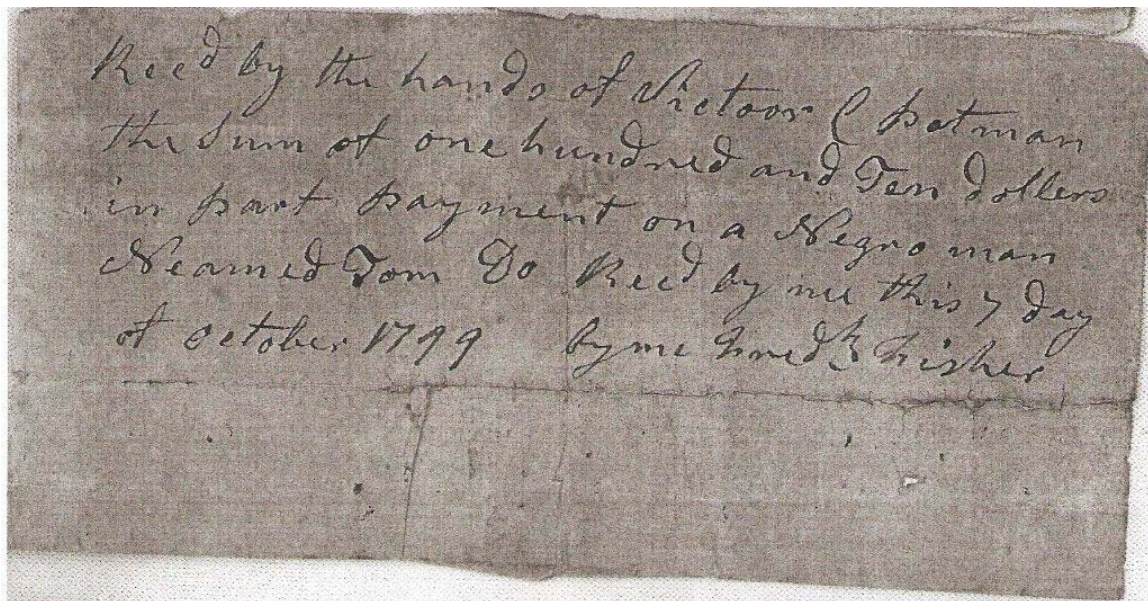 Recd by the hands of Victoor
the Sum of one hundred and Ten dollers
in part payment on a Negro man
Neamed Tom Do Recd by me this 7 day
of october 1799 by me Fredk Fisher